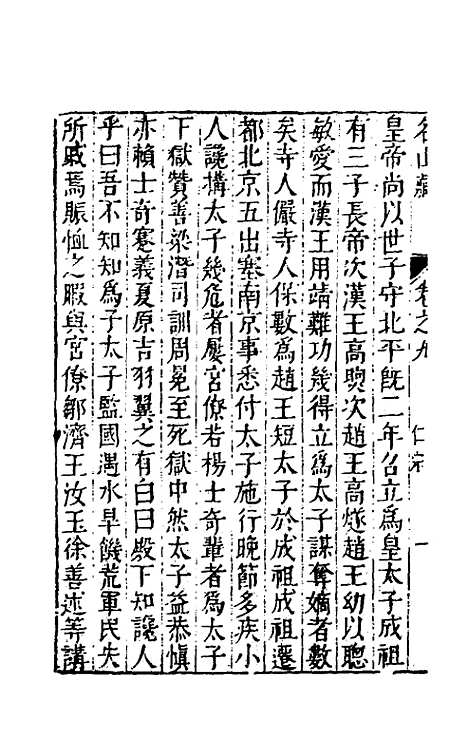 名山藏 卷之九 仁宗 一
皇帝尚以世子守北平旣二年召立爲皇太子成祖
有三子長帝次漢王高煦次趙王高燧趙王幼以聰
敏愛而漢王用靖難功幾得立爲太子謀奪嫡者數
矣寺人儼寺人保數爲趙王短太子於成祖成祖遷
都北京五出塞南京事悉付太子施行晚節多疾小
人讒搆太子幾危者屢宮僚若楊士奇輩者爲太子
下獄贊善梁潛司訓周冕至死獄中然太子益恭愼
亦賴士奇蹇義夏原吉羽翼之有白曰殿下知讒人
乎曰吾不知知爲子太子監國遇水旱饑荒軍民失
所戚焉賑恤之暇與宮僚鄒濟王汝玉徐善述等講